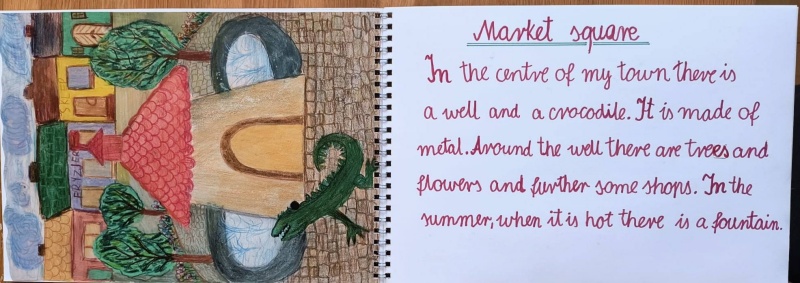 FRYZJER
Market square
In the centre of my town there is
a well and a crocodile. It is made of
metal. Around the well there are trees and
flowers and further some shops. In the
summer, when it is hot there is a fountain.